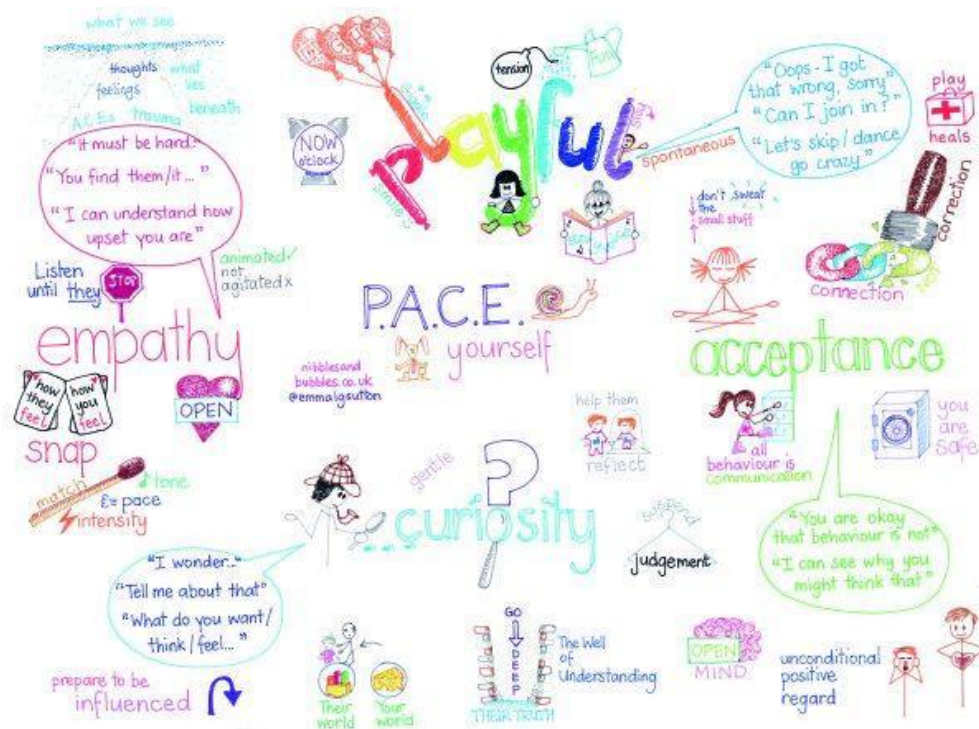 what we see
thoughts
feelings
what
lies
beneath
A.C.Es trauma
"It must be hard."
"You find them/it..."
"I can understand how
upset you are"
Listen
until they
STOP
animated ✓
not
agitated x
empathy
how
they
feel
how
you
feel
OPEN
snap
match
tone
pace
intensity
LIGHT
NOW
o'clock
tension
FUN
playful
smile
silly
spontaneous
"Oops - I got
that wrong, sorry"
"Can I join in?"
"Let's skip/dance
go crazy"
play
heals
don't sweat
the
small stuff
connection
connection
P.A.C.E.
yourself
nibblesand
bubbles.co.uk
@emmalgsutton
acceptance
all
behaviour is
communication
you
are
safe
"You are okay
that behaviour is not"
"I can see why you
might think that"
help them
reflect
gentle
?
curiosity
suspend
judgement
"I wonder..."
"Tell me about that"
"What do you want/
think/feel..."
prepare to be
influenced
Their
world
Your
world
GO
DEEP
The Well
of
Understanding
THEIR TRUTH
OPEN
MIND
unconditional
positive
regard